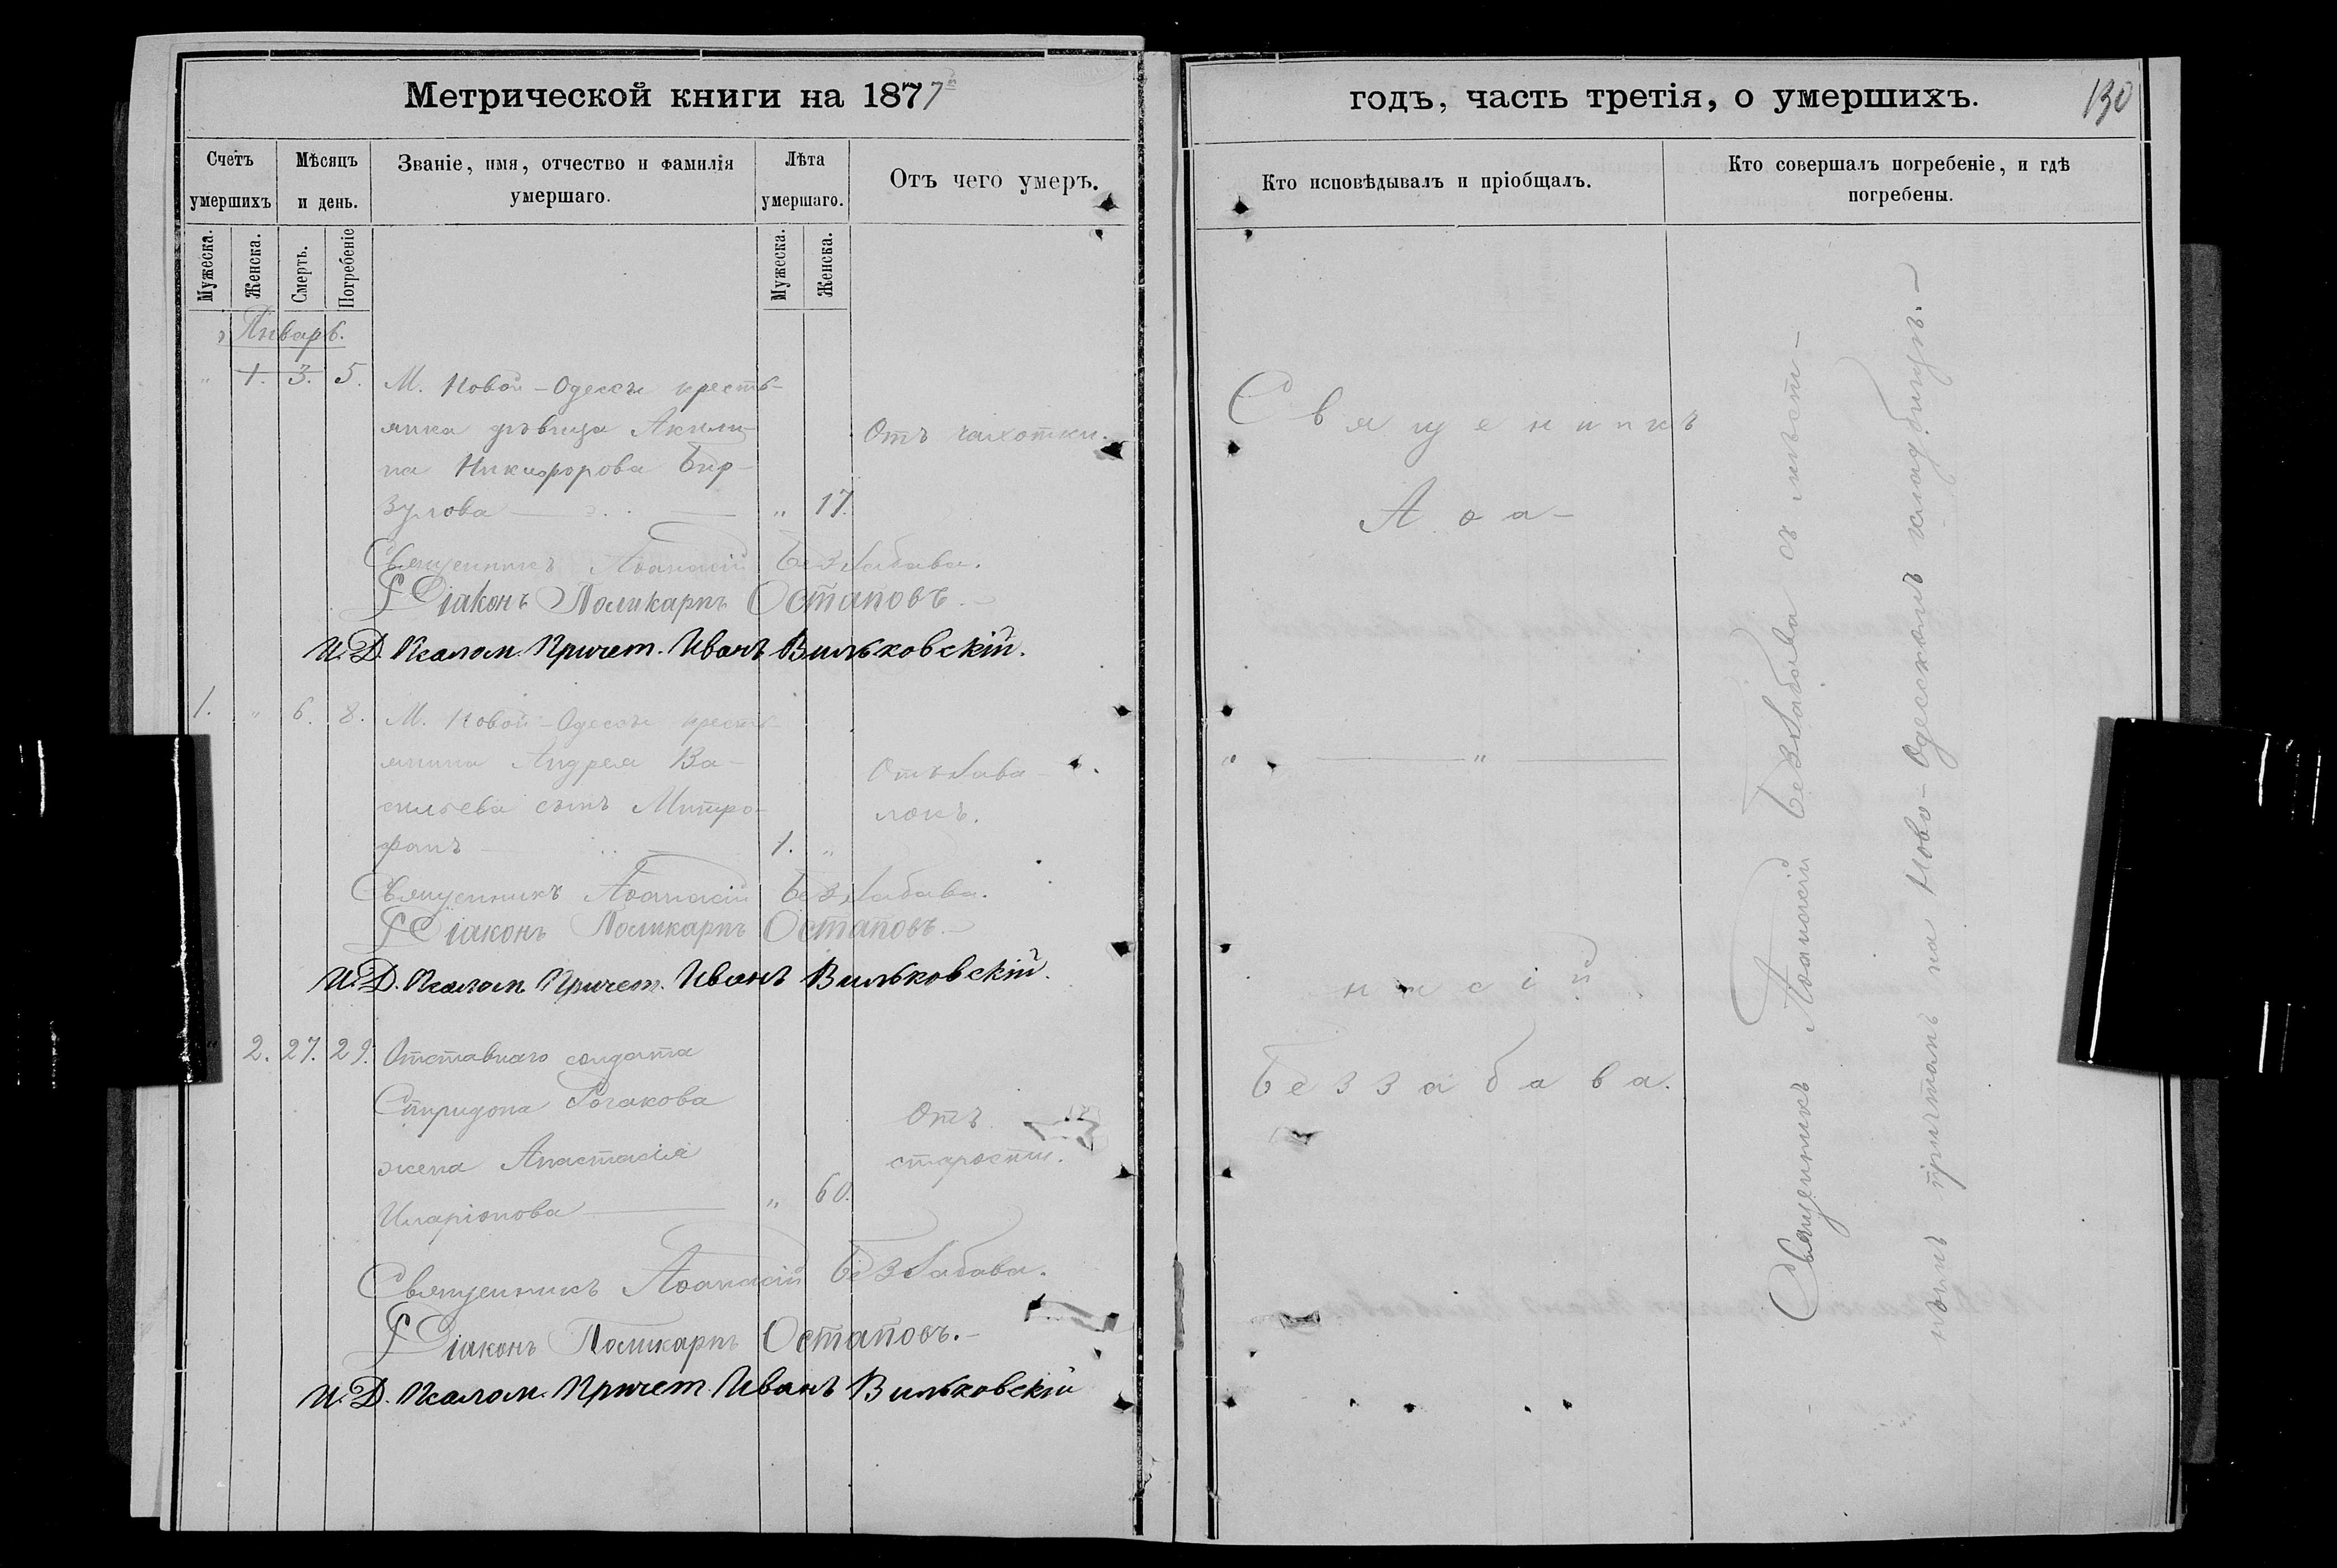 Метрической книги на 1877й
Счетъ умершихъ
Мѣсяцъ и день.
Званіе, имя, отчество и фамилія умершаго.
Лѣта умершаго.
Отъ чего умеръ.
Мужеска.
Женска.
Смерть.
Погребеніе
Мужеска.
Женска.
Январь.
" 1. 3. 5. М. Новой-Одессы кресть-
янка дѣвица Акили-
на Никифорова Бир-
зулова " 17.
Отъ чахотки.
Священникъ Аѳанасій Беззабава.
Діаконъ Поликарпъ Остаповъ.
И. Д. Псалом. Причет. Иванъ Вильковскій.
1. " 6. 8. М. Новой-Одессы кресть-
янина Андрея Ва-
сильева сынъ Митро-
фанъ 1. "
Отъ зава-
локъ.
Священникъ Аѳанасій Беззабава.
Діаконъ Поликарпъ Остаповъ.
И. Д. Псалом. Причет. Иванъ Вильковскій.
" 2. 27. 29. Отставнаго солдата
Спиридона Рогакова
жена Анастасія
Иларіонова " 60.
Отъ
старости.
Священникъ Аѳанасій Беззабава.
Діаконъ Поликарпъ Остаповъ.
И. Д. Псалом. Причет. Иванъ Вильковскій
годъ, часть третія, о умершихъ.
130
Кто исповѣдывалъ и пріобщалъ.
Кто совершалъ погребеніе, и гдѣ
погребены.
Священникъ
Аѳа-
" "
насій
Беззабава.
Священникъ Аѳанасій Беззабава съ мѣст-
нымъ причтомъ на Ново-Одесскомъ кладбищѣ.